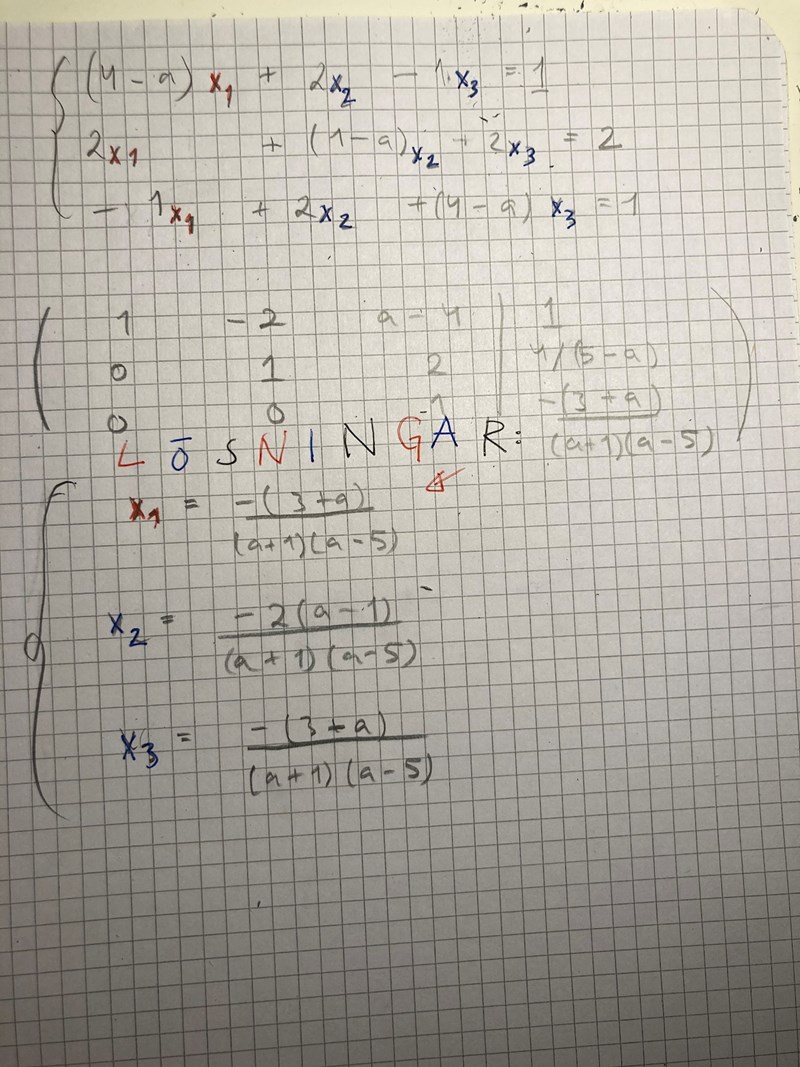 (4 - a) x₁ + 2x₂ - 1·x₃ = 1
2x₁ + (1 - a)x₂ + 2x₃ = 2
- 1x₁ + 2x₂ + (4 - a) x₃ = 1
1 -2 a - 4 | 1
0 1 2 | 4/(5 - a)
0 0 1 | -(3 + a)/(a+1)(a-5)
LÖSNINGAR:
x₁ = -(3 + a)/(a+1)(a-5)
x₂ = -2(a-1)/(a+1)(a-5)
x₃ = -(3 + a)/(a+1)(a-5)